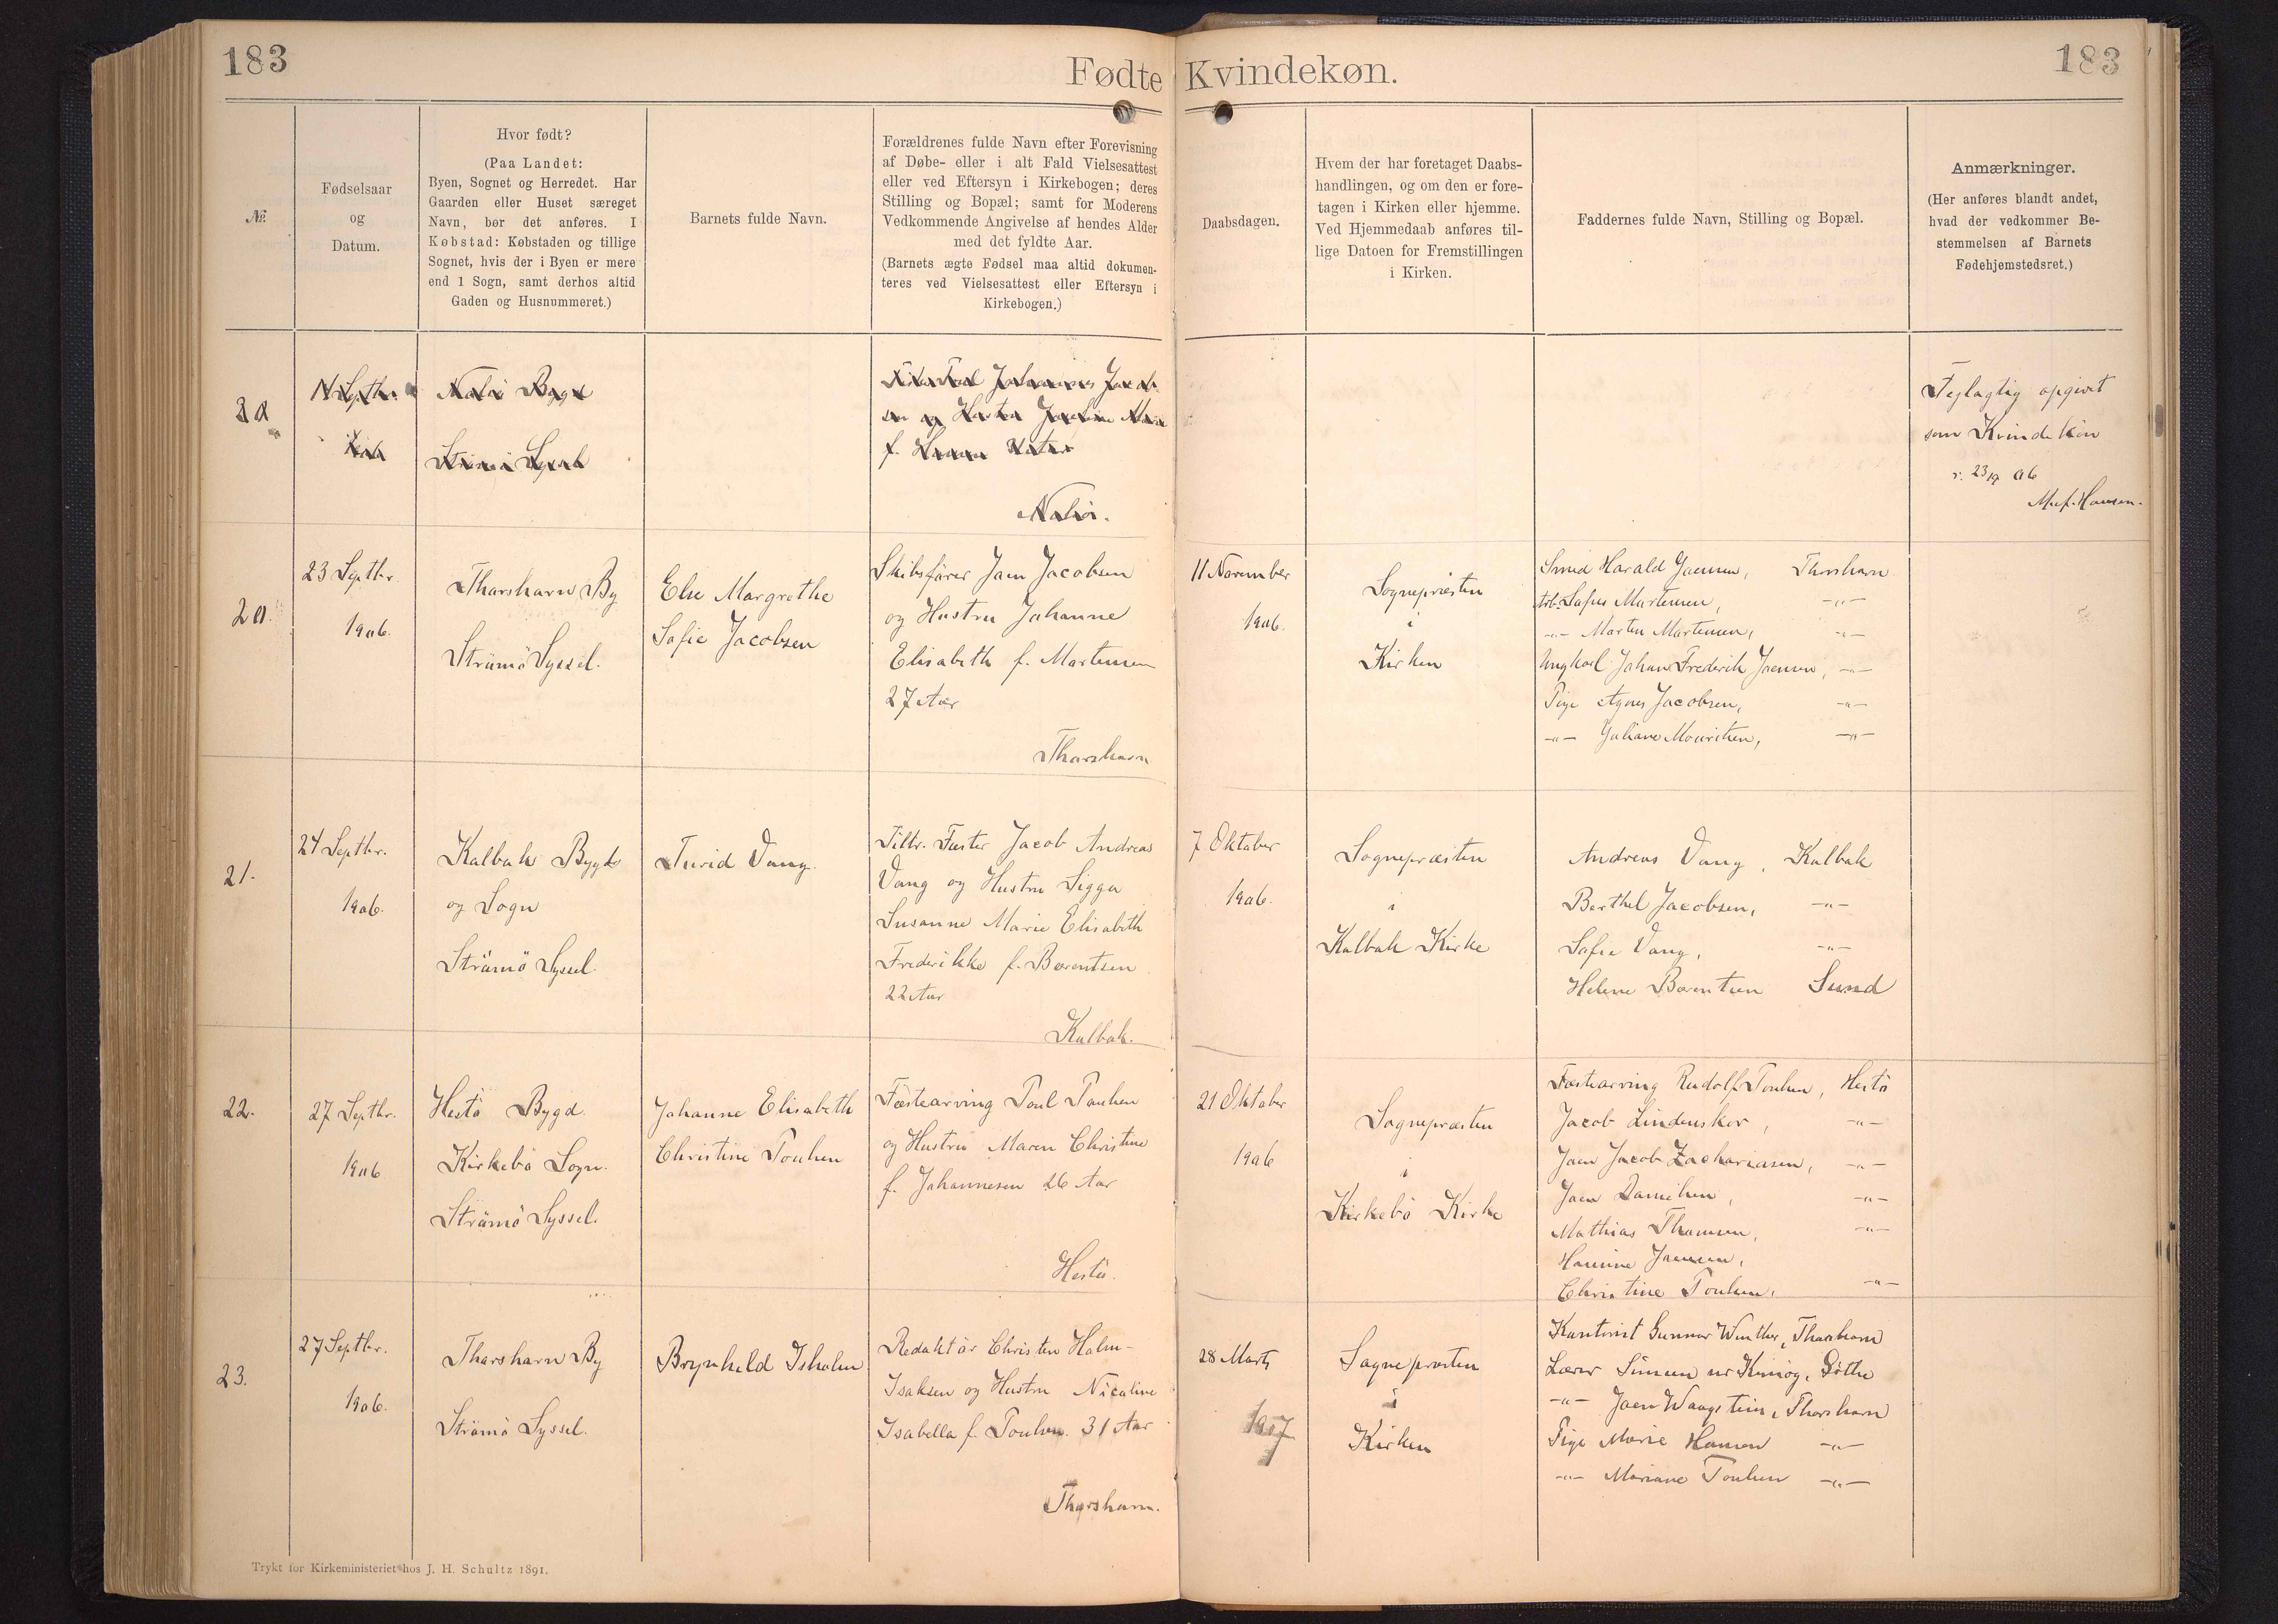 183
Fødte Kvindekøn.
183
№
Fødselsaar
og
Datum.
Hvor født?
(Paa Landet:
Byen, Sognet og Herredet. Har
Gaarden eller Huset særeget
Navn, bør det anføres. I
Købstad: Købstaden og tillige
Sognet, hvis der i Byen er mere
end 1 Sogn, samt derhos altid
Gaden og Husnummeret.)
Barnets fulde Navn.
Forældrenes fulde Navn efter Forevisning
af Døbe- eller i alt Fald Vielsesattest
eller ved Eftersyn i Kirkebogen; deres
Stilling og Bopæl; samt for Moderens
Vedkommende Angivelse af hendes Alder
med det fyldte Aar.
(Barnets ægte Fødsel maa altid dokumen-
teres ved Vielsesattest eller Eftersyn i
Kirkebogen.)
Daabsdagen.
Hvem der har foretaget Daabs-
handlingen, og om den er fore-
tagen i Kirken eller hjemme.
Ved Hjemmedaab anføres til-
lige Datoen for Fremstillingen
i Kirken.
Faddernes fulde Navn, Stilling og Bopæl.
Anmærkninger.
(Her anføres blandt andet,
hvad der vedkommer Be-
stemmelsen af Barnets
Fødehjemstedsret.)
20
Septbr.
Nolsö Bygd
Strömö Syssel
Johannes Jacob-
sen og Hustru
f.
Nolsö.
Fejlagtig opgivet
som Kvindekön
Hansen.
20.
23 Septbr.
1906.
Thorshavn By
Strömö Syssel.
Else Margrethe
Sofie Jacobsen
Skibsförer Joen Jacobsen
og Hustru Johanne
Elisabeth f. Martensen
27 Aar
Thorshavn
11 November
1906.
Sognepræsten
i
Kirken
Smed Harald Joensen, Thorshavn
Arb. Martensen, -"-
-"- Morten Martensen, -"-
Ungkarl Johan Frederik Joensen, -"-
Pige Agnes Jacobsen, -"-
-"- Mouritsen, -"-
21.
24 Septbr.
1906.
Kalbak Bygd
og Sogn
Strömö Syssel.
Turid Vang.
Jacob Andreas
Vang og Hustru Sigga
Susanne Marie Elisabeth
Frederikke f. Berentsen
22 Aar
Kalbak.
7 Oktober
1906.
Sognepræsten
i
Kalbak Kirke
Andreas Vang, Kalbak
Berthel Jacobsen, -"-
Sofie Vang, -"-
Helene Berentsen Sund
22.
27 Septbr.
1906
Hestö Bygd.
Kirkebö Sogn.
Strömö Syssel.
Johanne Elisabeth
Christine Poulsen
Fæstearving Poul Poulsen
og Hustru Maren Christine
f. Johannesen 26 Aar
Hestö.
21 Oktober
1906
Sognepræsten
i
Kirkebö Kirke
Fæstearving Rudolf Poulsen, Hestö
Jacob Lindenskov, -"-
Joen Jacob Zachariasen, -"-
Joen Danielsen, -"-
Mathias Thomsen, -"-
Joensen,
Christine Poulsen, -"-
23.
27 Septbr.
1906.
Thorshavn By
Strömö Syssel.
Brynhild Isholm
Redaktör Christen Holm-
Isaksen og Hustru Nicoline
Isabella f. Poulsen. 31 Aar
Thorshavn.
28 Marts
1907
Sognepræsten
i
Kirken
Kontorist Gunnar Winther, Thorshavn
Lærer Simun
-"- Joen Waagstein, Thorshavn
Pige Marie Hansen -"-
-"- Mariane Poulsen -"-
Trykt for Kirkeministeriet hos J. H. Schultz 1891.